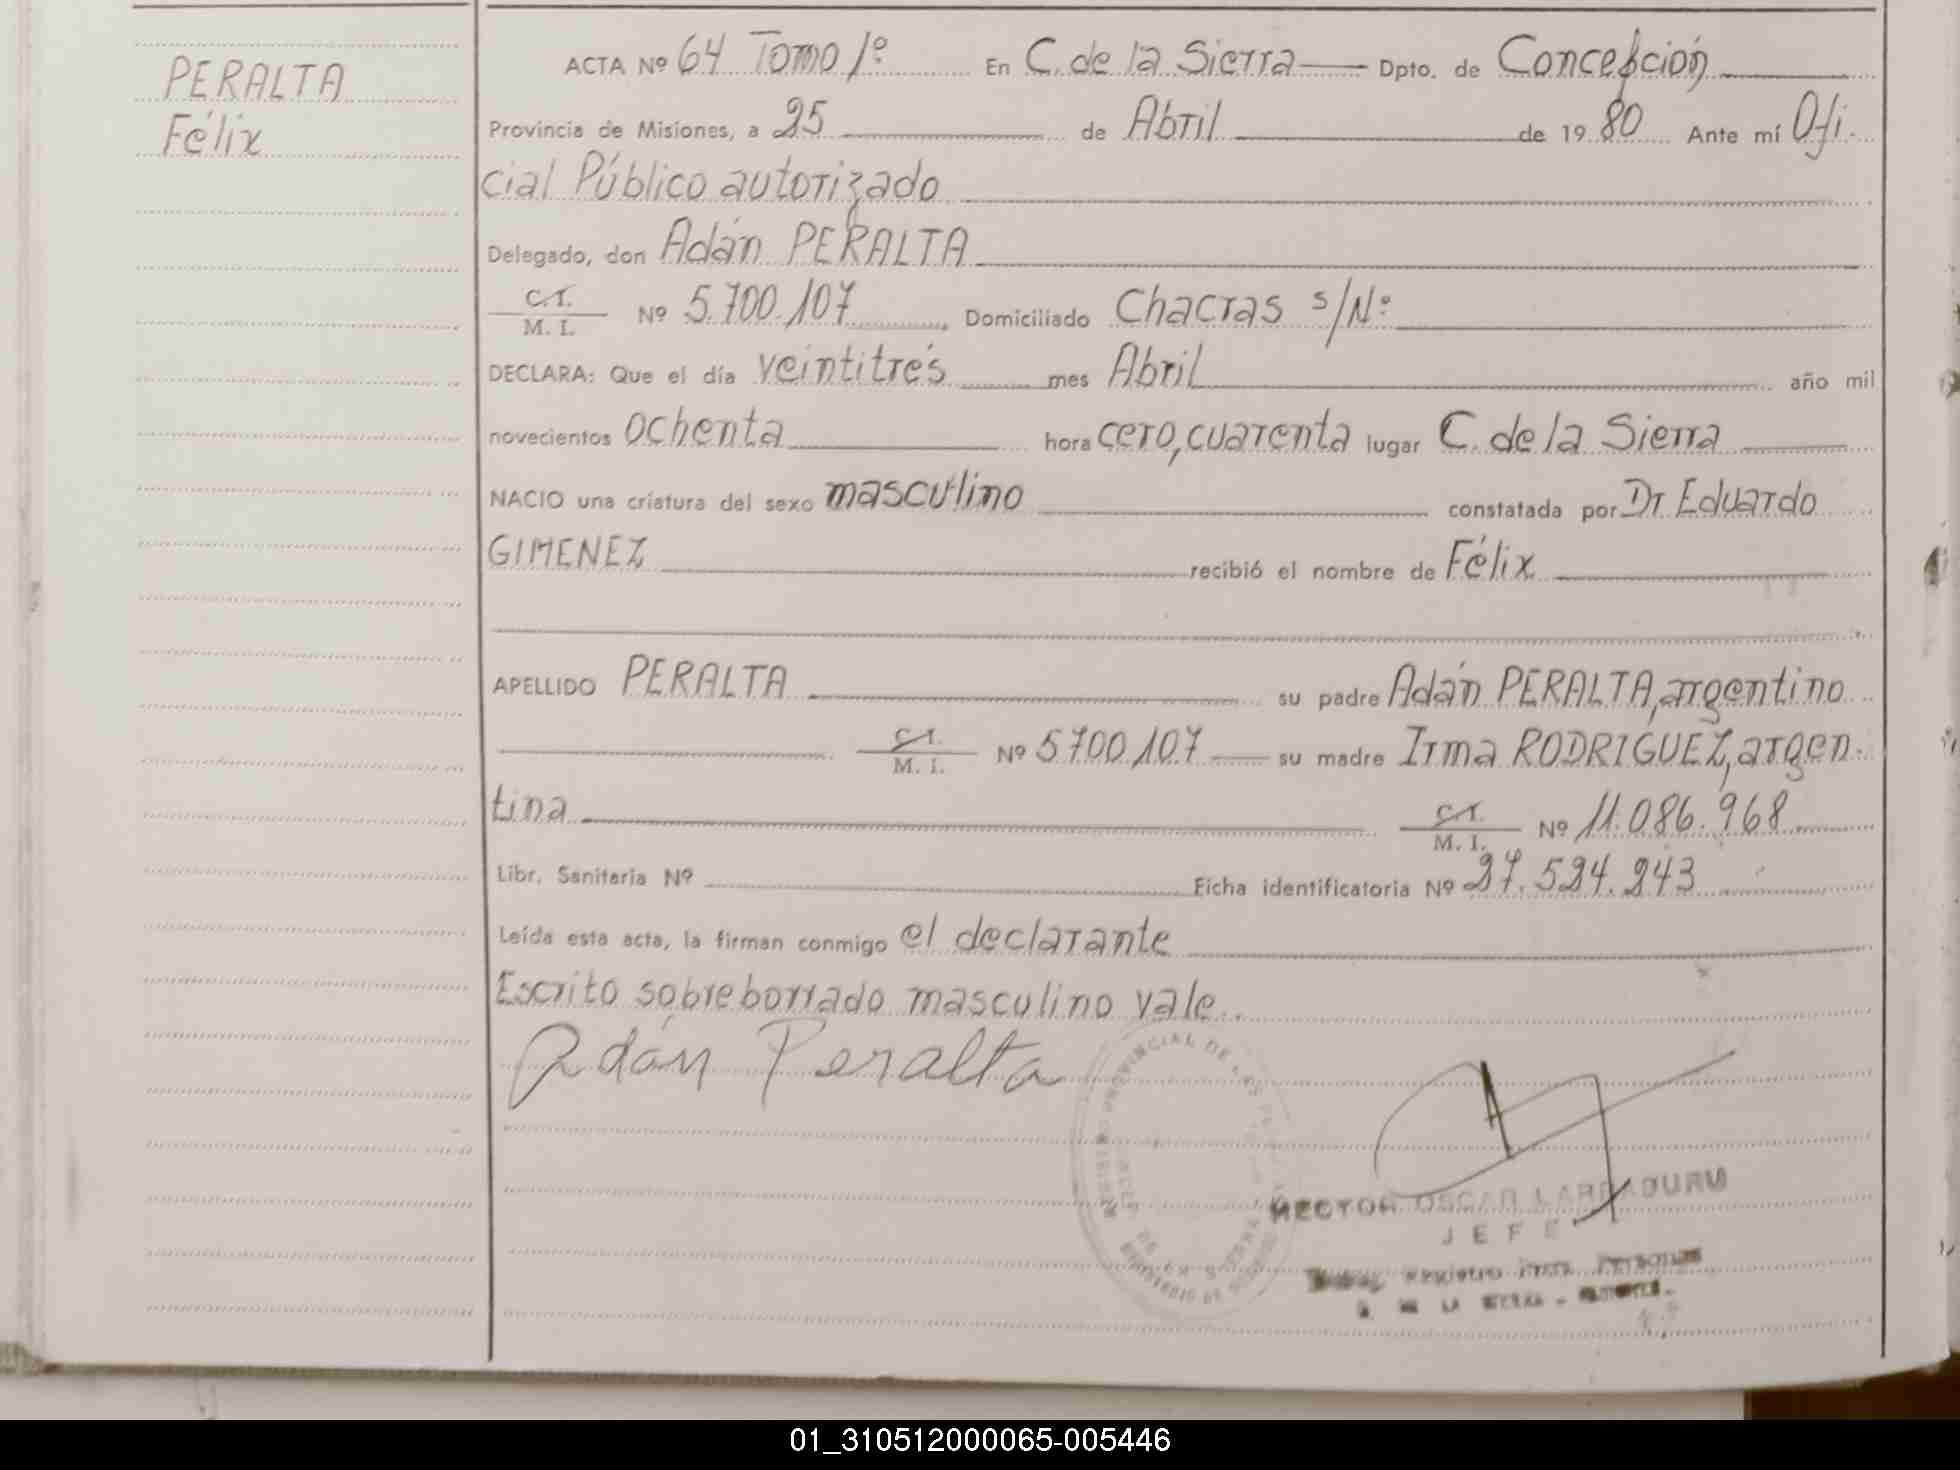 PERALTA
Félix
ACTA Nº 64 Tomo 1º En C. de la Sierra Dpto. de Concepción
Provincia de Misiones, a 25 de Abril de 1980 Ante mí Ofi.
cial Público autorizado
Delegado, don Adán PERALTA
C.I.
M. I. Nº 5.700.107 Domiciliado Chacras s/Nº
DECLARA: Que el día veintitrés mes Abril año mil
novecientos ochenta hora cero, cuarenta lugar C. de la Sierra
NACIO una criatura del sexo masculino constatada por Dr Eduardo
GIMENEZ recibió el nombre de Félix
APELLIDO PERALTA su padre Adán PERALTA, argentino
C.I.
M. I. Nº 5700.107 su madre Irma RODRIGUEZ, argen.
tina C.I.
M. I. Nº 11.086.968
Libr. Sanitaria Nº Ficha identificatoria Nº 27.524.243
Leída esta acta, la firman conmigo el declarante
Escrito sobreborrado masculino vale.
Adán Peralta
REGISTRO PROVINCIAL DE LAS
HECTOR OSCAR LARRABURU
JEFE
Registro Prov. Personas
LA SIERRA
01_310512000065-005446